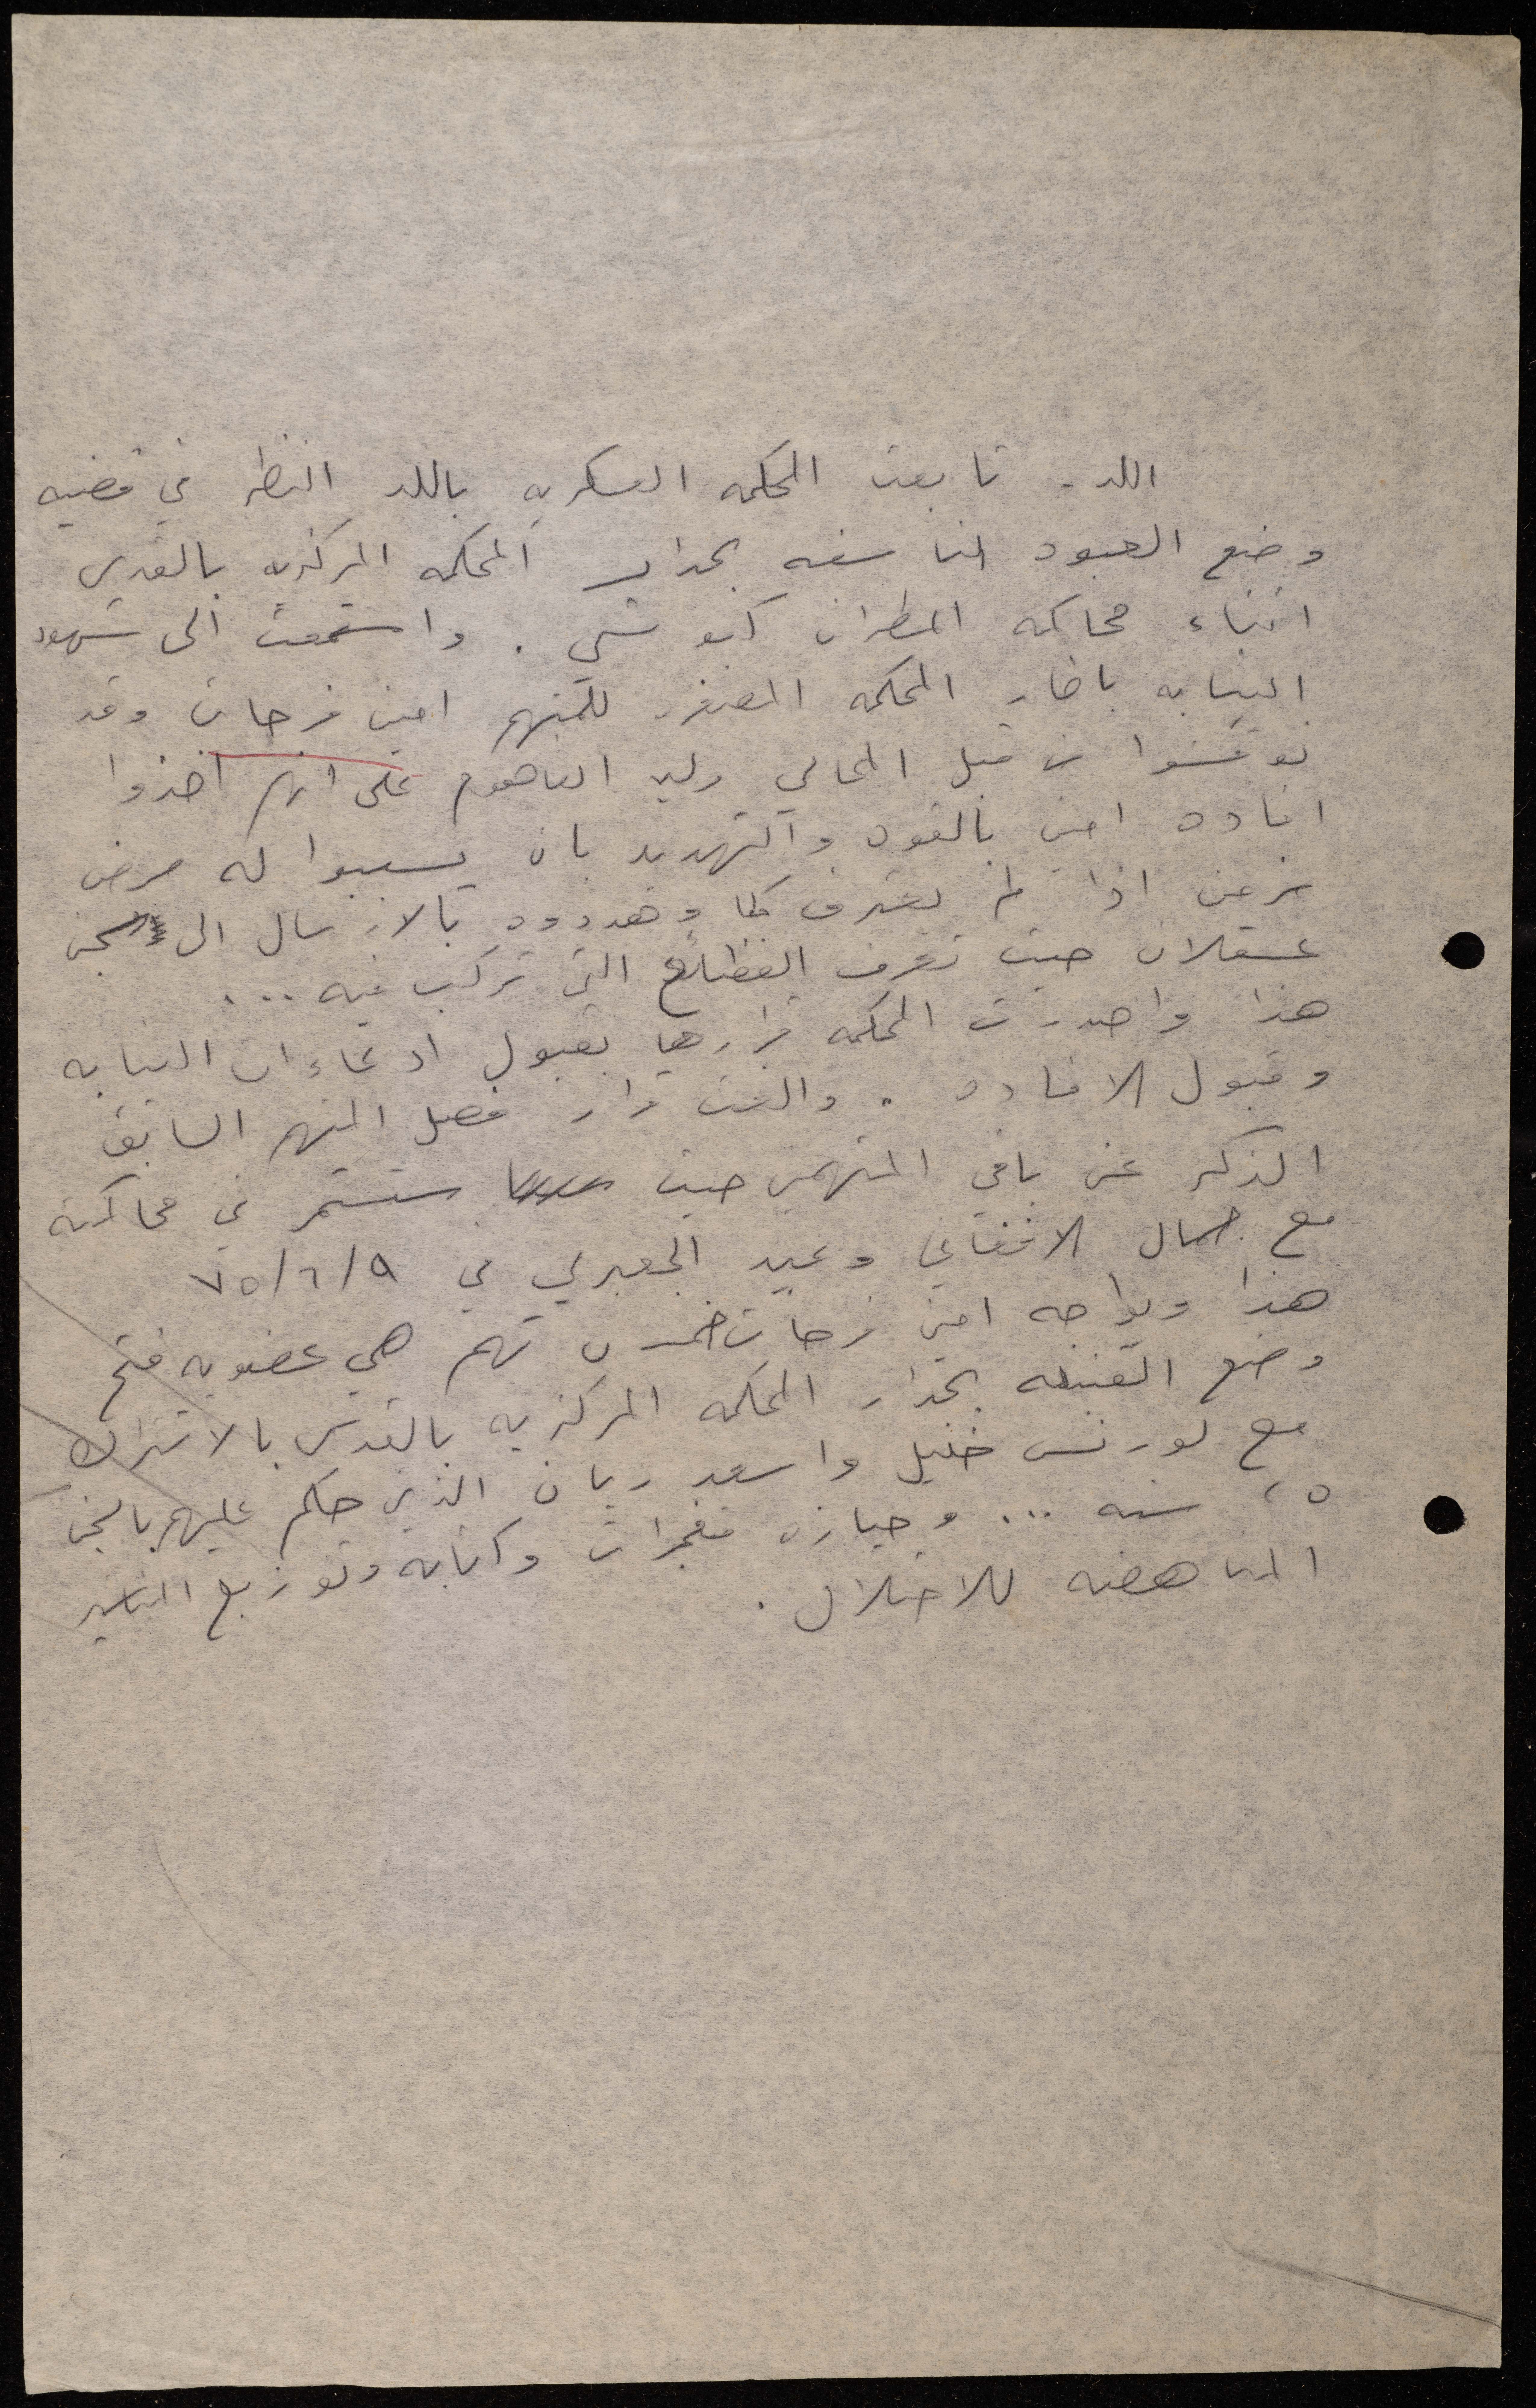 اللد - تابعت المحكمه العسكريه باللد النظر في قضيه
وضع العبوه الناسفه بجدار المحكمه المركزيه بالقدس
اثناء محاكمه المطران كبوتشي . واستمعت الى شهود
النيابه باطار المحكمه المصغره للمتهم امين فرحات وقد
نوقشوا من قبل المحامي وليد الفاهوم على انهم اخذوا
افاده امين بالقوه والتهديد بان يسببوا له مرض
مزمن اذا لم يعترف كما وهددوه بالارسال الى سجن
عسقلان حيث تعرف الفظائع التي ترتكب فيه ...
هذا واصدرت المحكمه قرارها بقبول ادعاءات النيابه
وقبول الافاده . والغت قرار فصل المتهم السابق
الذكر عن باقي المتهمين حيث ستستمر في محاكمته
مع جمال الافغاني وعبد الجعبري في ٧٥/٦/٩
هذا ويواجه امين فرحات خمس تهم هي عضويه فتح
وضع القنبله بجدار المحكمه المركزيه بالقدس بالاشتراك
مع لورنس خليل واسعد ريان الذين حكم عليهم بالسجن
٢٥ سنه ... وحيازه متفجرات وكتابه وتوزيع المناشير
المناهضه للاحتلال .